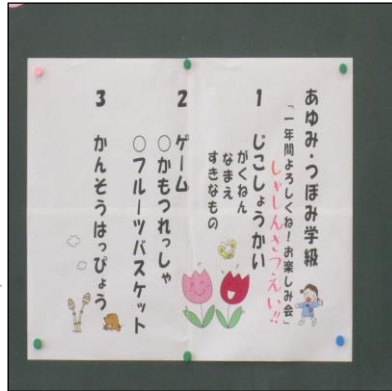 あゆみ・つぼみ学級
「一年間よろしくね！お楽しみ会」
しゃしんさつえい!!
1 じこしょうかい
がくねん
なまえ
すきなもの
2 ゲーム
○かもつれっしゃ
○フルーツバスケット
3 かんそうはっぴょう